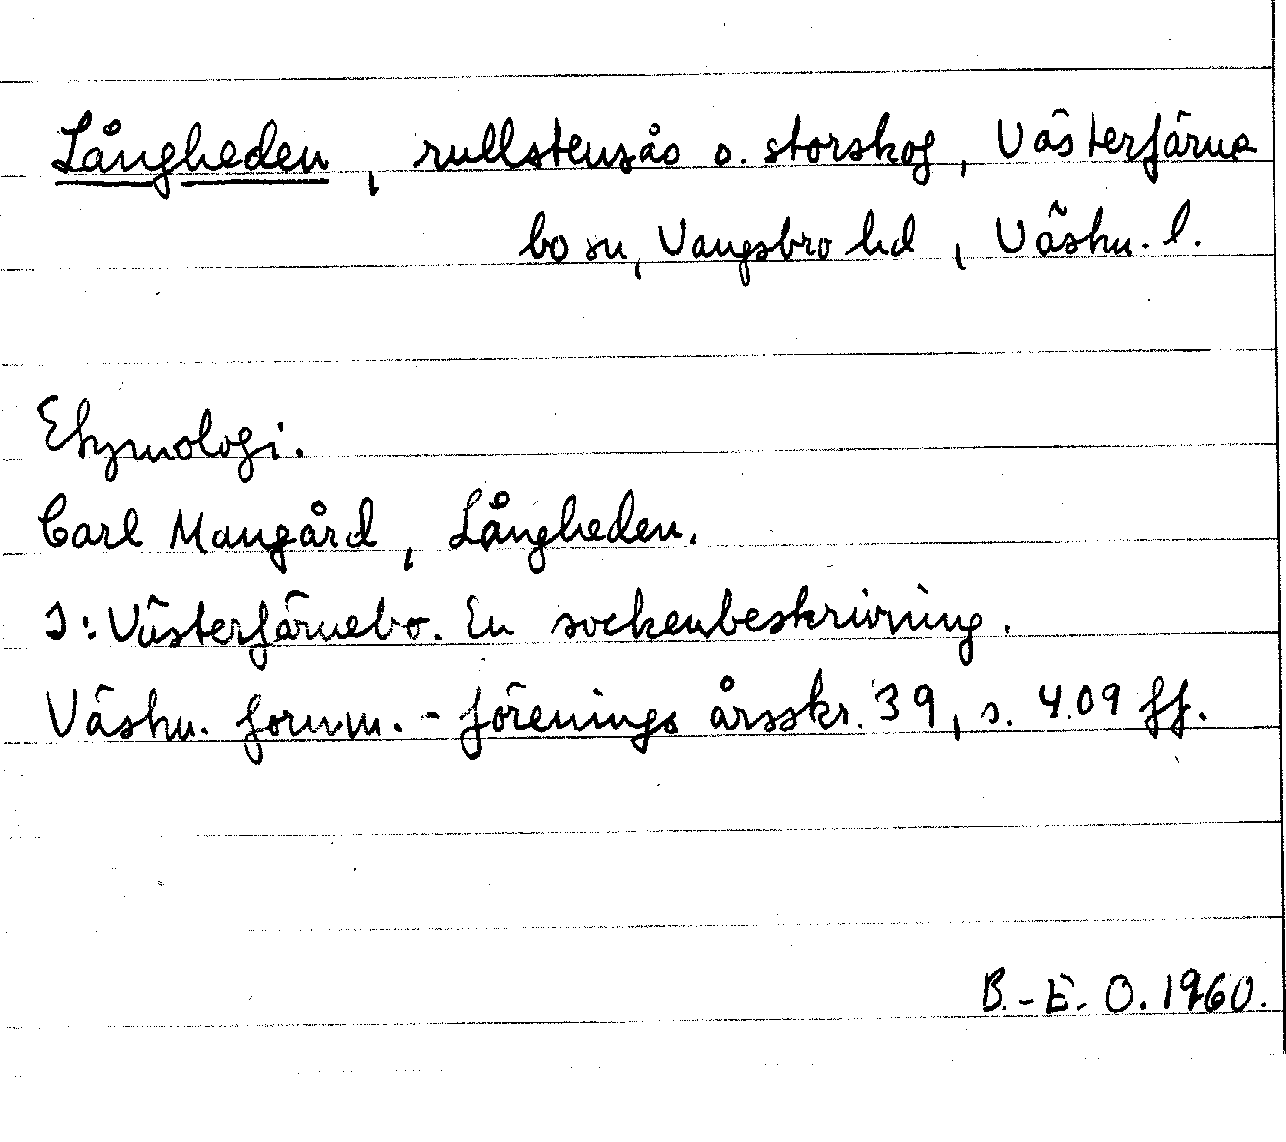 Långheden, rullstensås o. storskog, Västerfärne
bo sn, Vangsbro hd, Västm. l.
Etymologi.
Carl Mangård, Långheden.
I: Västerfärnebo. En sockenbeskrivning.
Västm. fornm.-förenings årsskr. 39, s. 409 ff.
B.-E. O. 1960.